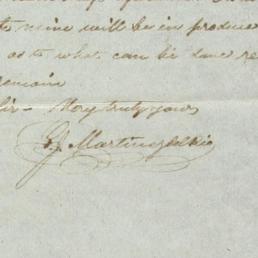 mine will be in produce
as to what can be done re
remain
Sir – Very truly yours
G. J. Martinez del Rio